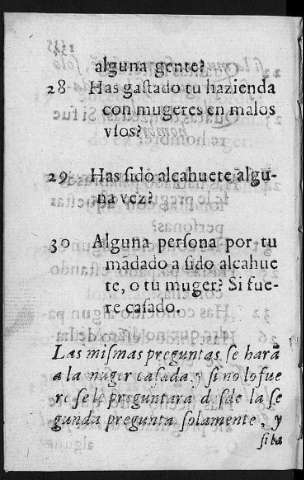 alguna gente?
28 Has gastado tu hazienda
con mugeres en malos
vsos?
29 Has sido alcahuete algu-
na vez?
30 Alguna persona por tu
mãdado a sido alcahue
te, o tu muger? Si fue-
re casado.
Las mismas preguntas se harã
a la muger casada, y si no lo fue
re se le preguntara desde la se
gunda pregunta solamente, y
si ha